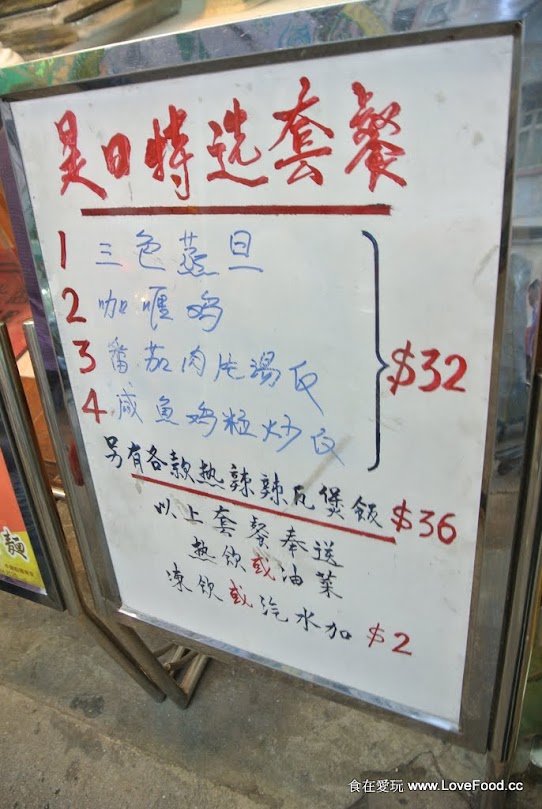 是日特选套餐
1 三色蒸旦
2 咖喱鸡
3 番茄肉片湯反
4 咸魚鸡粒炒反
$32
另有各款热辣辣瓦煲飯 $36
以上套餐奉送
热饮或油菜
凍饮或汽水加 $2
麵
食在愛玩 www.LoveFood.cc